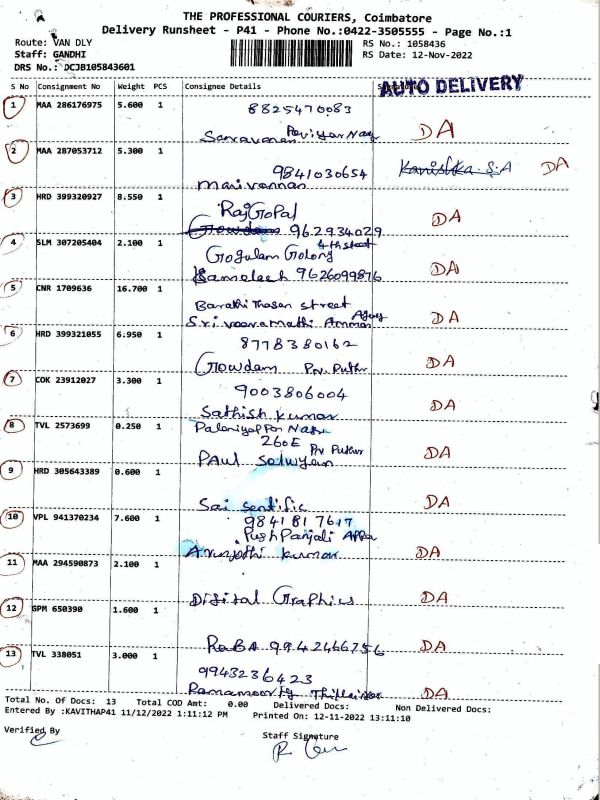 THE PROFESSIONAL COURIERS, Coimbatore
Delivery Runsheet - P41 - Phone No.:0422-3505555 - Page No.:1
Route: VAN DLY
RS No.: 1058436
Staff: GANDHI
RS Date: 12-Nov-2022
DRS No.: DCJB105843601
S No Consignment No Weight PCS Consignee Details
AUTO DELIVERY
1 MAA 286176975 5.600 1 8825470083
Saravanan Periyar Nagar DA
2 MAA 287053712 5.300 1 9841030654 Kanishka S.A DA
Marivannan
3 HRD 399320927 8.550 1 RajGopal
Gowdam 962934029 DA
4 SLM 307205404 2.100 1 Gogulam Golony 4th street
Kamelesh 9626099876 DA
5 CNR 1709636 16.700 1 Barathi Thasan street
Sri veeramathi Amman Agency DA
6 HRD 399321055 6.950 1 8778380162
Gowdam Prv. Puthur DA
7 COK 23912027 3.300 1 9003806004
Sathish kumar DA
8 TVL 2573699 0.250 1 Palaniyappa Nagar
260E Prv Puthur
PAul DA
9 HRD 305643389 0.600 1
Sai sentific DA
10 VPL 941370234 7.600 1 9841817617
PushPanjali APPa
Arunjothi kumar DA
11 MAA 294590873 2.100 1
Digital Graphics DA
12 GPM 650390 1.600 1
RaBA 9942466756 DA
13 TVL 338051 3.000 1 9943236423
Ramamoorthy DA
Total No. Of Docs: 13 Total COD Amt: 0.00 Delivered Docs: Non Delivered Docs:
Entered By :KAVITHAP41 11/12/2022 1:11:12 PM Printed On: 12-11-2022 13:11:10
Verified By
Staff Signature